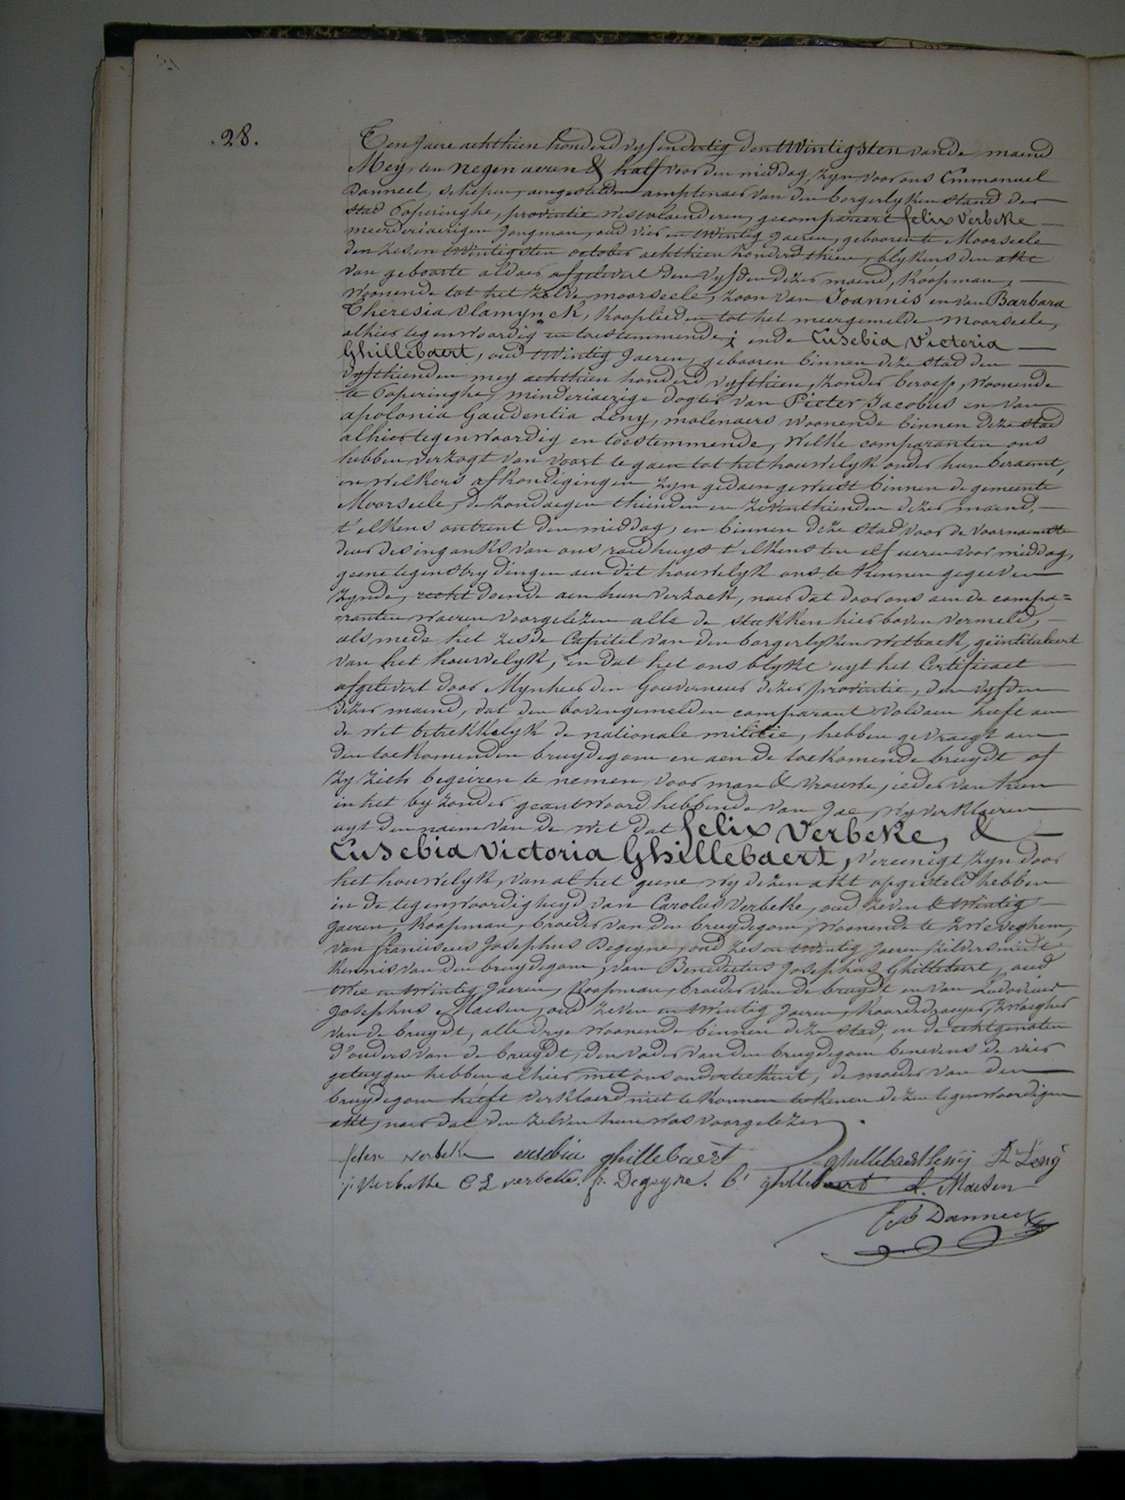 .28.
Ten Jaere achthien honderd vyfendertig den twintigsten van de maend
Mey, ten negen uren & half voor den middag, zyn voor ons Emmanuel
Danneel, schepen, aengestelden amptenaer van den borgerlyken stand der
stad Poperinghe, provintie Westvlaenderen, gecompareert felix Verbeke
meerderiaerigen jongman, oud vier en twintig Jaeren, gebooren te Moorseele
den zes en twintigsten october achthien honderd thien, blykens den akt
van geboorte aldaer afgelevert den vyfden dezer maend, Koopman,
woonende tot het zelve moorseele, zoon van Joannis en van Barbara
Theresia Vlamynck, Kooplieden tot het meergemelde Moorseele,
alhier tegenwoordig en toestemmende; ende Eusebia Victoria
Ghillebaert, oud twintig Jaeren, gebooren binnen deze stad den
vyfthienden mey achthien honderd vyfthien, zonder beroep, woonende
te Poperinghe, minderiaerige dogter van Pieter Jacobus en van
apolonia Gaudentia Leny, molenaers woonende binnen deze stad
alhier tegenwoordig en toestemmende, Welke comparanten ons
hebben verzogt van voort te gaen tot het houwelyk onder hun beraemt,
en welkers afkondigingen zyn gedaen geweest binnen de gemeente
Moorseele, de zondaegen thienden en zeventhienden dezer maend,
t'elkens ontrent den middag, en binnen deze stad voor de voornaemste
deur des ingangs van ons raedhuys t'elkens ten elf uren voor middag,
geene tegenstrydingen aen dit houwelyk ons te kennen gegeeven
zynde, recht doende aen hun verzoek, naer dat door ons aen de compa=
ranten waeren voorgelezen alle de stukken hier boven vermeld,
als mede het zesde Capitel van den borgerlyken Wetboek, geintituleert
van het houwelyk, en dat het ons blykt uyt het Certificaet
afgelevert door Mynheer den Gouverneur dezer provintie, den vyfden
dezer maend, dat den bovengemelden comparant voldaen heeft aen
de wet betrekkelyk de nationale militie, hebben gevraegt aen
den toekomenden bruydegom en aen de toekomende bruydt of
zy zich begeiren te nemen voor man & vrouwe, ieder van hun
in het byzonder geantwoord hebbende van Jae, wy verklaeren
uyt den naem van de wet dat felix Verbeke, &
Eusebia Victoria Ghillebaert, vereenigt zyn door
het houwelyk, van al het geene wy dezen akt opgesteld hebben
in de tegenwoordigheyd van Carolus Verbeke, oud zeven & twintig
Jaeren, Koopman, broeder van den bruydegom, woonende te Zweveghem,
van franciscus Josephus Degeyne, oud zes en twintig Jaeren zilversmidt,
kennis van den bruydegom, van Benedictus Josephus Ghillebaert, oud
dry en twintig Jaeren, Koopman, broeder van de bruydt en van Ludovicus
Josephus Maesen, oud zeven en twintig Jaeren, Zwaegher
van de bruydt, alle drye woonende binnen deze stad, en de echtgenoten
d'ouders van de bruydt, den vader van den bruydegom benevens de vier
getuygen hebben alhier met ons onderteekent, de moeder van den
bruydegom heeft verklaerd niet te konnen teekenen dezen tegenwoordigen
akt, naer dat den zelven hun was voorgelezen.
felix verbeke eusebia ghillebaert ghillebaert leny A Leny
j: Verbeke C L verbeke. f. Degeyne. b: ghillebaert L. Maesen
Danneel